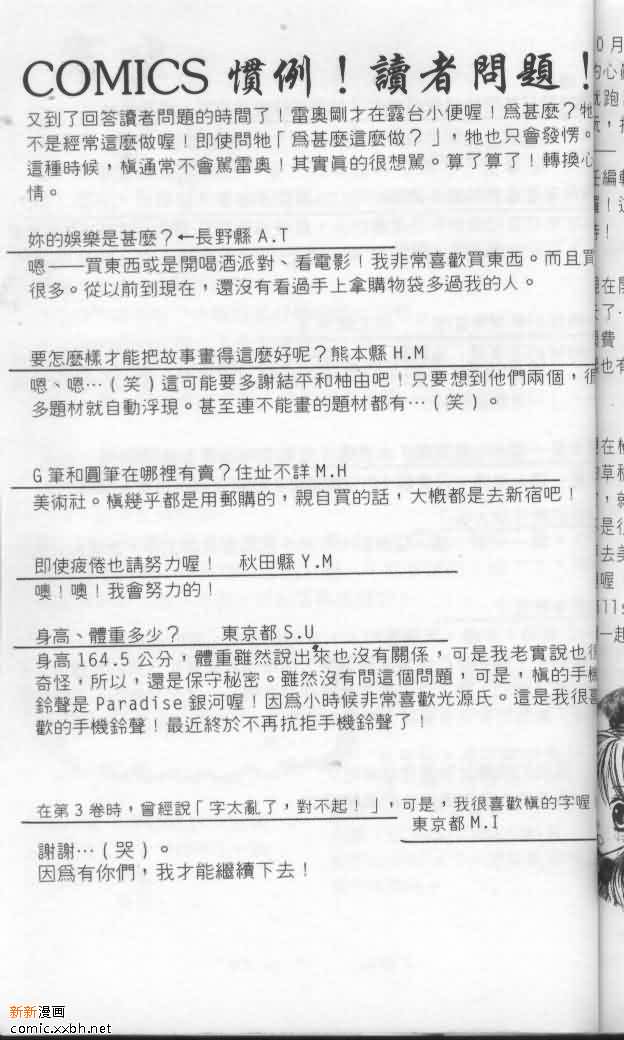 COMICS 慣例！讀者問題！
又到了回答讀者問題的時間了！雷奧剛才在露台小便喔！爲甚麼？牠
不是經常這麼做喔！即使問牠「爲甚麼這麼做？」，牠也只會發愣。
這種時候，槇通常不會駡雷奧！其實眞的很想駡。算了算了！轉換心
情。
妳的娛樂是甚麼？←長野縣 A.T
嗯——買東西或是開喝酒派對、看電影！我非常喜歡買東西。而且買
很多。從以前到現在，還沒有看過手上拿購物袋多過我的人。
要怎麼樣才能把故事畫得這麼好呢？熊本縣 H.M
嗯、嗯…（笑）這可能要多謝結不和柚由吧！只要想到他們兩個，很
多題材就自動浮現。甚至連不能畫的題材都有…（笑）。
G 筆和圓筆在哪裡有賣？住址不詳 M.H
美術社。槇幾乎都是用郵購的，親自買的話，大槪都是去新宿吧！
即使疲倦也請努力喔！ 秋田縣 Y.M
噢！噢！我會努力的！
身高、體重多少？ 東京都 S.U
身高 164.5 公分，體重雖然說出來也沒有關係，可是我老實說也很
奇怪，所以，還是保守秘密。雖然沒有問這個問題，可是，槇的手機
鈴聲是 Paradise 銀河喔！因爲小時候非常喜歡光源氏。這是我很喜
歡的手機鈴聲！最近終於不再抗拒手機鈴聲了！
在第 3 卷時，曾經說「字太亂了，對不起！」，可是，我很喜歡槇的字喔
東京都 M.I
謝謝…（哭）。
因爲有你們，我才能繼續下去！
新新漫画
comic.xxbh.net